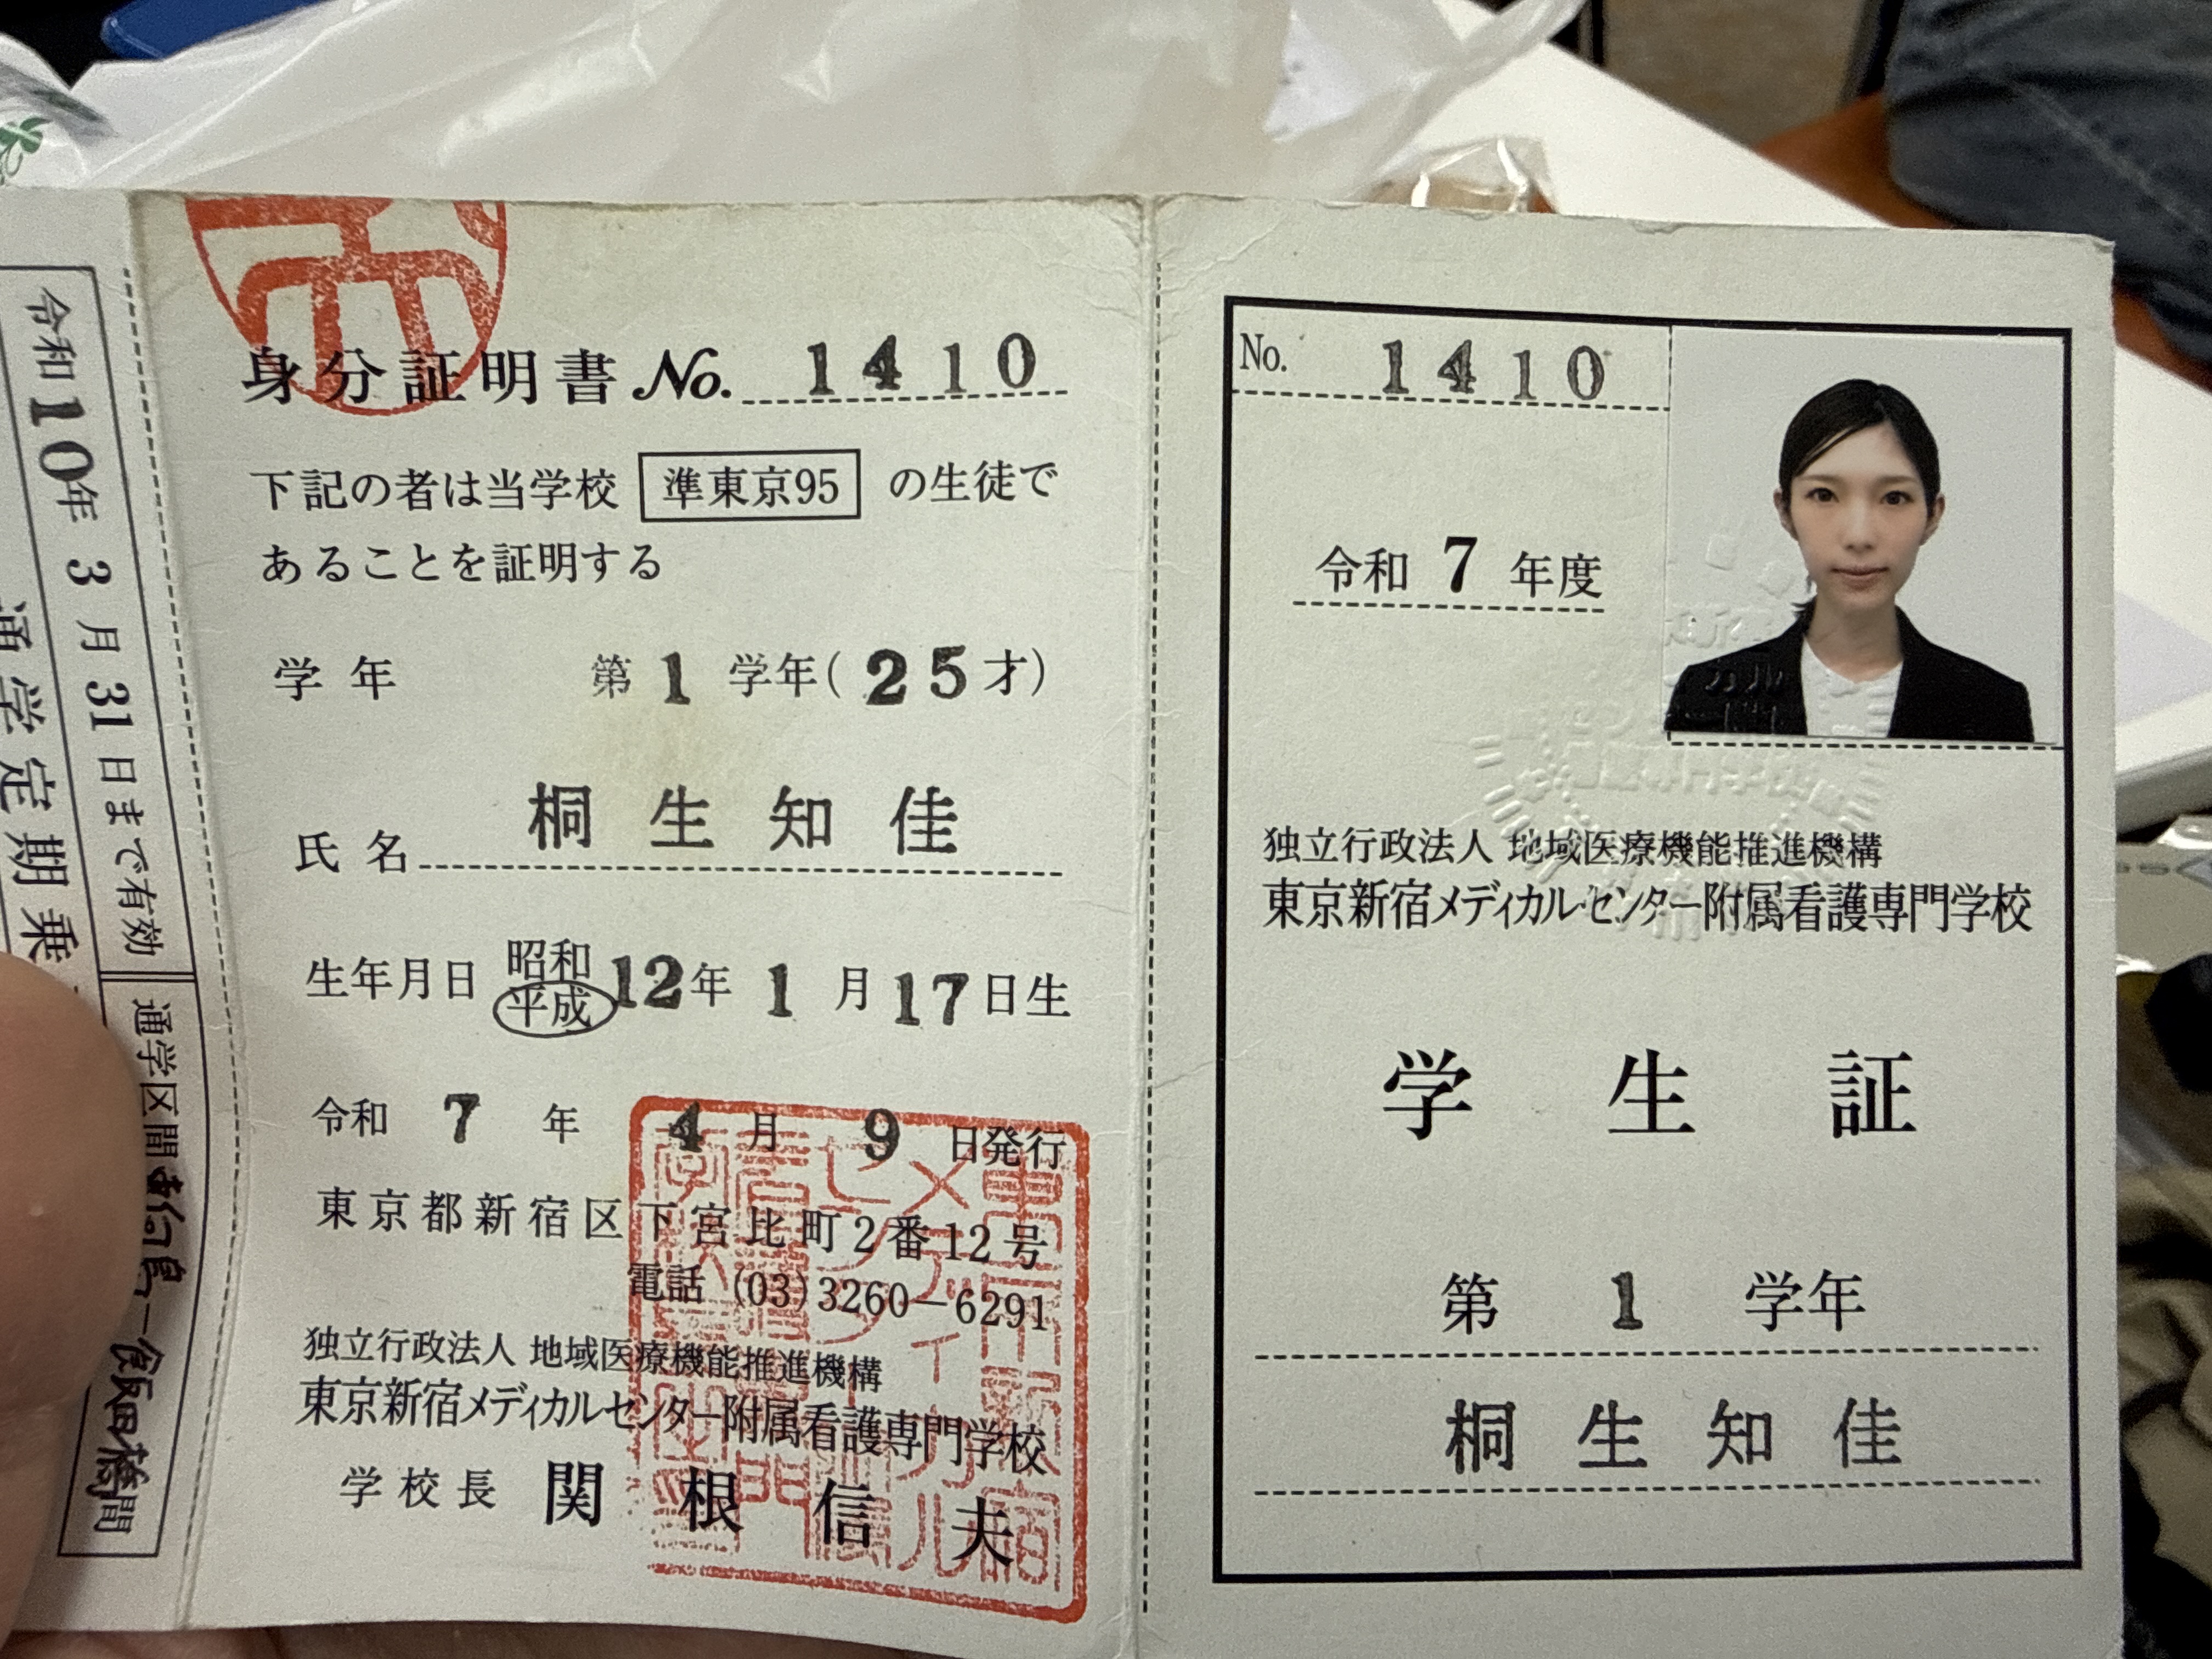 令和10年 3月31日まで有効
通学区間 飯田橋間
通学定期乗
身分証明書 No. 1410
下記の者は当学校 準東京95 の生徒で
あることを証明する
学年 第 1 学年 (25才)
氏名 桐生知佳
生年月日 昭和 平成 12年 1月 17日生
令和 7年 4月 9日発行
東京都新宿区下宮比町2番12号
電話 (03)3260-6291
独立行政法人 地域医療機能推進機構
東京新宿メディカルセンター附属看護専門学校
学校長 関根信夫
No. 1410
令和 7 年度
独立行政法人 地域医療機能推進機構
東京新宿メディカルセンター附属看護専門学校
学生証
第 1 学年
桐生知佳